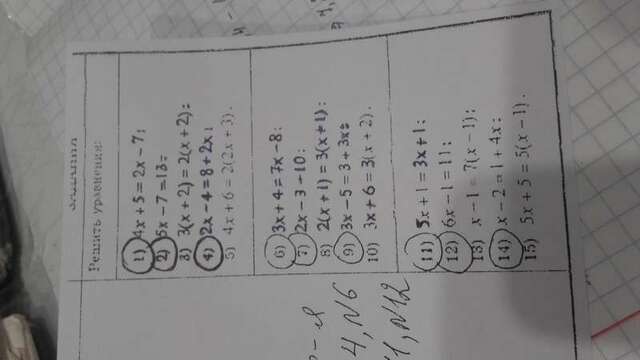 ЗАДАНИЯ
Решить уравнения:
1) 4x + 5 = 2x - 7;
2) 5x - 7 = 13;
3) 3(x + 2) = 2(x + 2);
4) 2x - 4 = 8 + 2x;
5) 4x + 6 = 2(2x + 3).
6) 3x + 4 = 7x - 8;
7) 2x - 3 = 10;
8) 2(x + 1) = 3(x + 1);
9) 3x - 5 = 3 + 3x;
10) 3x + 6 = 3(x + 2).
11) 5x + 1 = 3x + 1;
12) 6x - 1 = 11;
13) x - 1 = 7(x - 1);
14) x - 2 = 1 + 4x;
15) 5x + 5 = 5(x - 1).
4, N6
N12